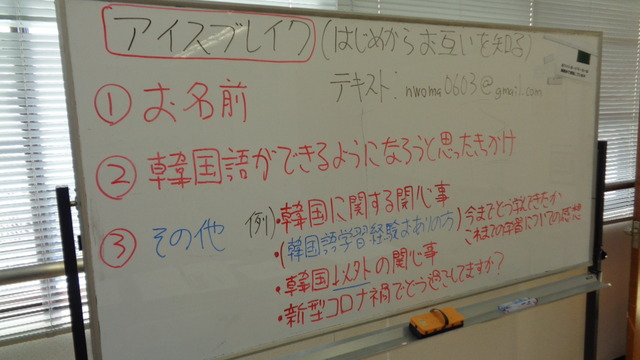 アイスブレイク (はじめからお互いを知る)
テキスト: nwoma0603@gmail.com
① お名前
② 韓国語ができるようになろうと思ったきっかけ
③ その他 例)・韓国に関する関心事
・(韓国語学習経験がおありの方) 今までどう学んできたか
これまでの学習についての感想
・韓国以外の関心事
・新型コロナ禍でどう過ごしてますか?